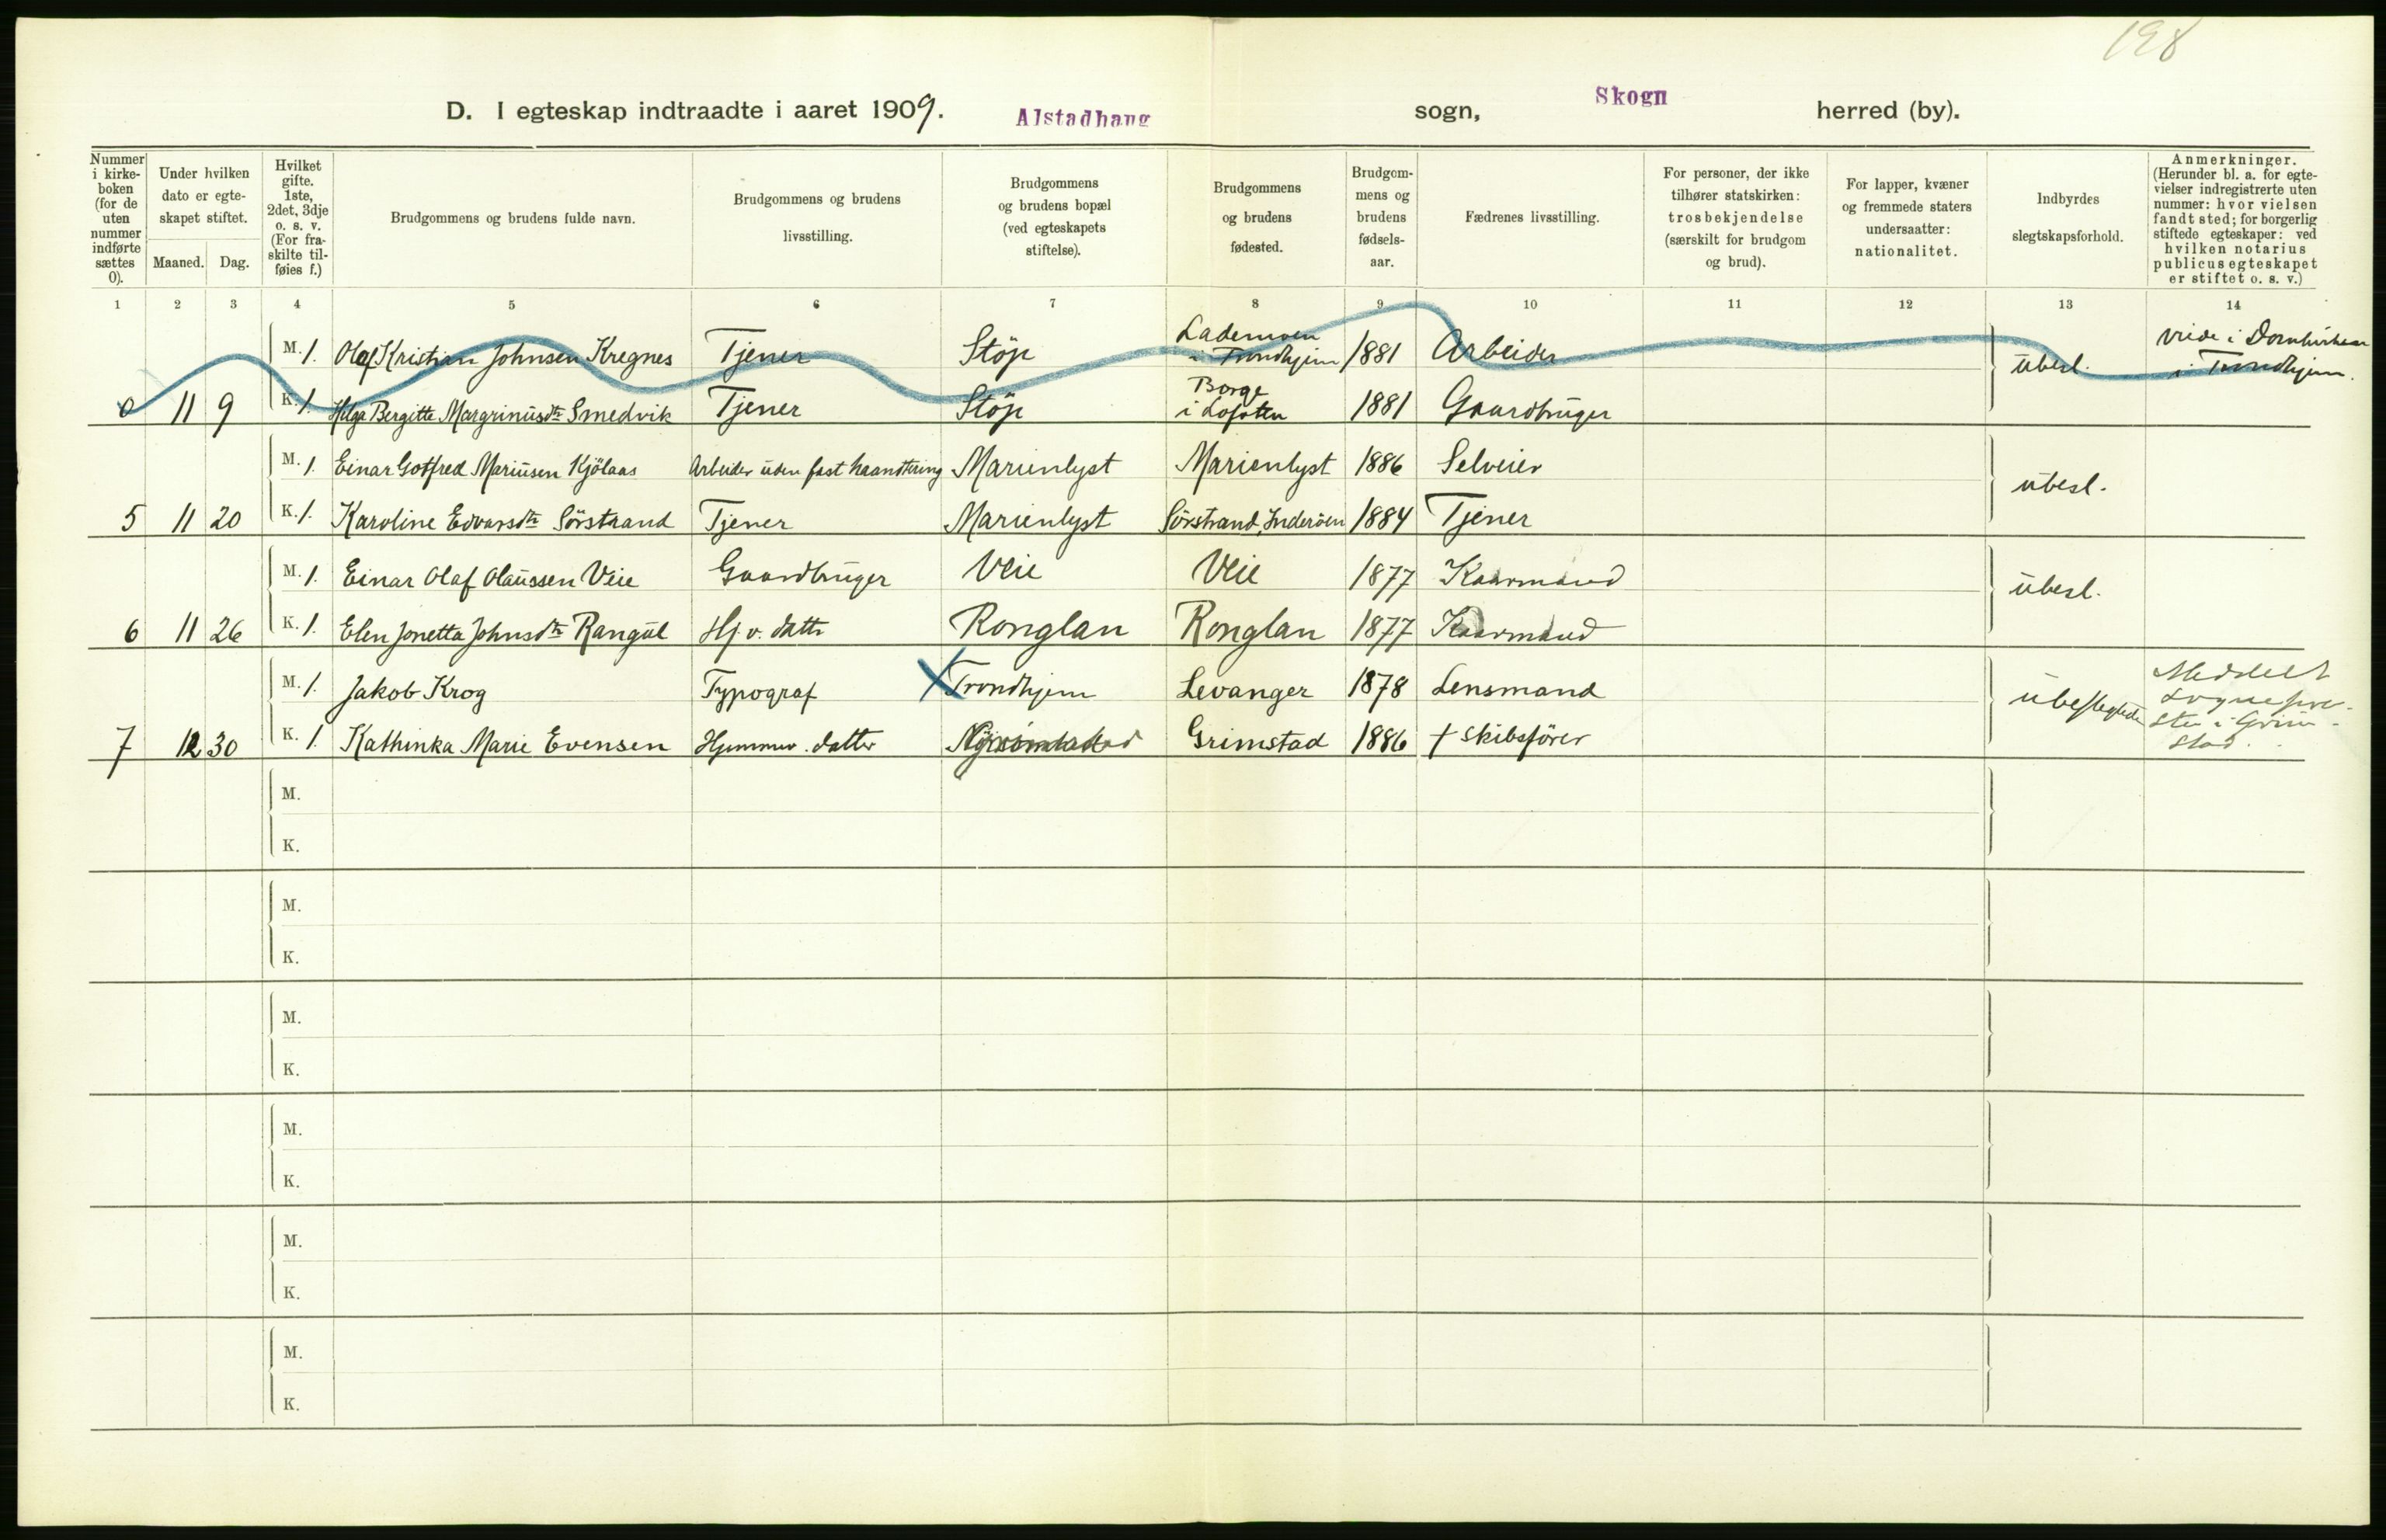 198
D. I egteskap indtraadte i aaret 1909. Alstadhaug sogn, Skogn herred (by).
Nummer i kirke-boken (for de uten nummer indførte sættes 0).
Under hvilken dato er egte-skapet stiftet.
Maaned. Dag.
Hvilket gifte. 1ste, 2det, 3dje o. s. v. (For fra-skilte til-føies f.)
Brudgommens og brudens fulde navn.
Brudgommens og brudens livsstilling.
Brudgommens og brudens bopæl (ved egteskapets stiftelse).
Brudgommens og brudens fødested.
Brudgom-mens og brudens fødsels-aar.
Fædrenes livsstilling.
For personer, der ikke tilhører statskirken: trosbekjendelse (særskilt for brudgom og brud).
For lapper, kvæner og fremmede staters undersaatter: nationalitet.
Indbyrdes slegtskapsforhold.
Anmerkninger. (Herunder bl. a. for egte-vielser indregistrerte uten nummer: hvor vielsen fandt sted; for borgerlig stiftede egteskaper: ved hvilken notarius publicus egteskapet er stiftet o. s. v.)
1 2 3 4 5 6 7 8 9 10 11 12 13 14
M. 1. Olaf Kristian Johnsen Kregnes Tjener Stöp Lademoen i Trondhjem 1881 Arbeider ubesl. viede i Domkirken i Trondhjem.
0 11 9 K. 1. Helga Bergitte Margrinusdtr Smedvik Tjener Stöp Borge i Lofoten 1881 Gaardbruger
M. 1. Einar Gotfred Mariusen Kjölaas Arbeider uden fast haandtering Marienlyst Marienlyst 1886 Selveier ubesl.
5 11 20 K. 1. Karoline Edvarsdtr Sörstrand Tjener Marienlyst Sörstrand, Inderöen 1884 Tjener
M. 1. Einar Olaf Olaussen Veie Gaardbruger Veie Veie 1877 Kaarmand ubesl.
6 11 26 K. 1. Elen Jonetta Johnsdtr Rangul Hj. v. datter Ronglan Ronglan 1877 Kaarmand
M. 1. Jakob Krog Typograf Trondhjem Levanger 1878 Lensmand ubeslegtede Meddelt Sognepre-sten i Grim-stad.
7 12 30 K. 1. Kathinka Marie Evensen Hjemmev. datter Grimstad 1886 † Skibsförer
M.
K.
M.
K.
M.
K.
M.
K.
M.
K.
M.
K.